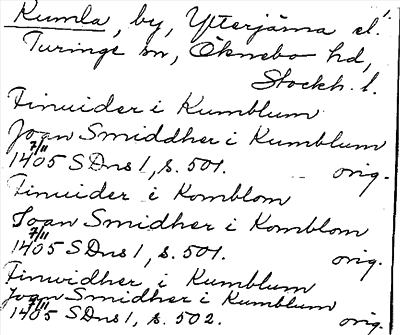 Kumla, by, Ytterjärna el.
Turinge sn, Öknebo hd,
Stockh. l.
Finuider i Kumblum
Joan Smiddher i Kumblum
7/11
1405 SDns 1, s. 501. orig.
Finuider i Komblom
Joan Smidher i Komblom
7/11
1405 SDns 1, s. 501. orig.
Finvidher i Kumblum
Joan Smidher i Kumblum
7/11
1405 SDns 1, s. 502. orig.